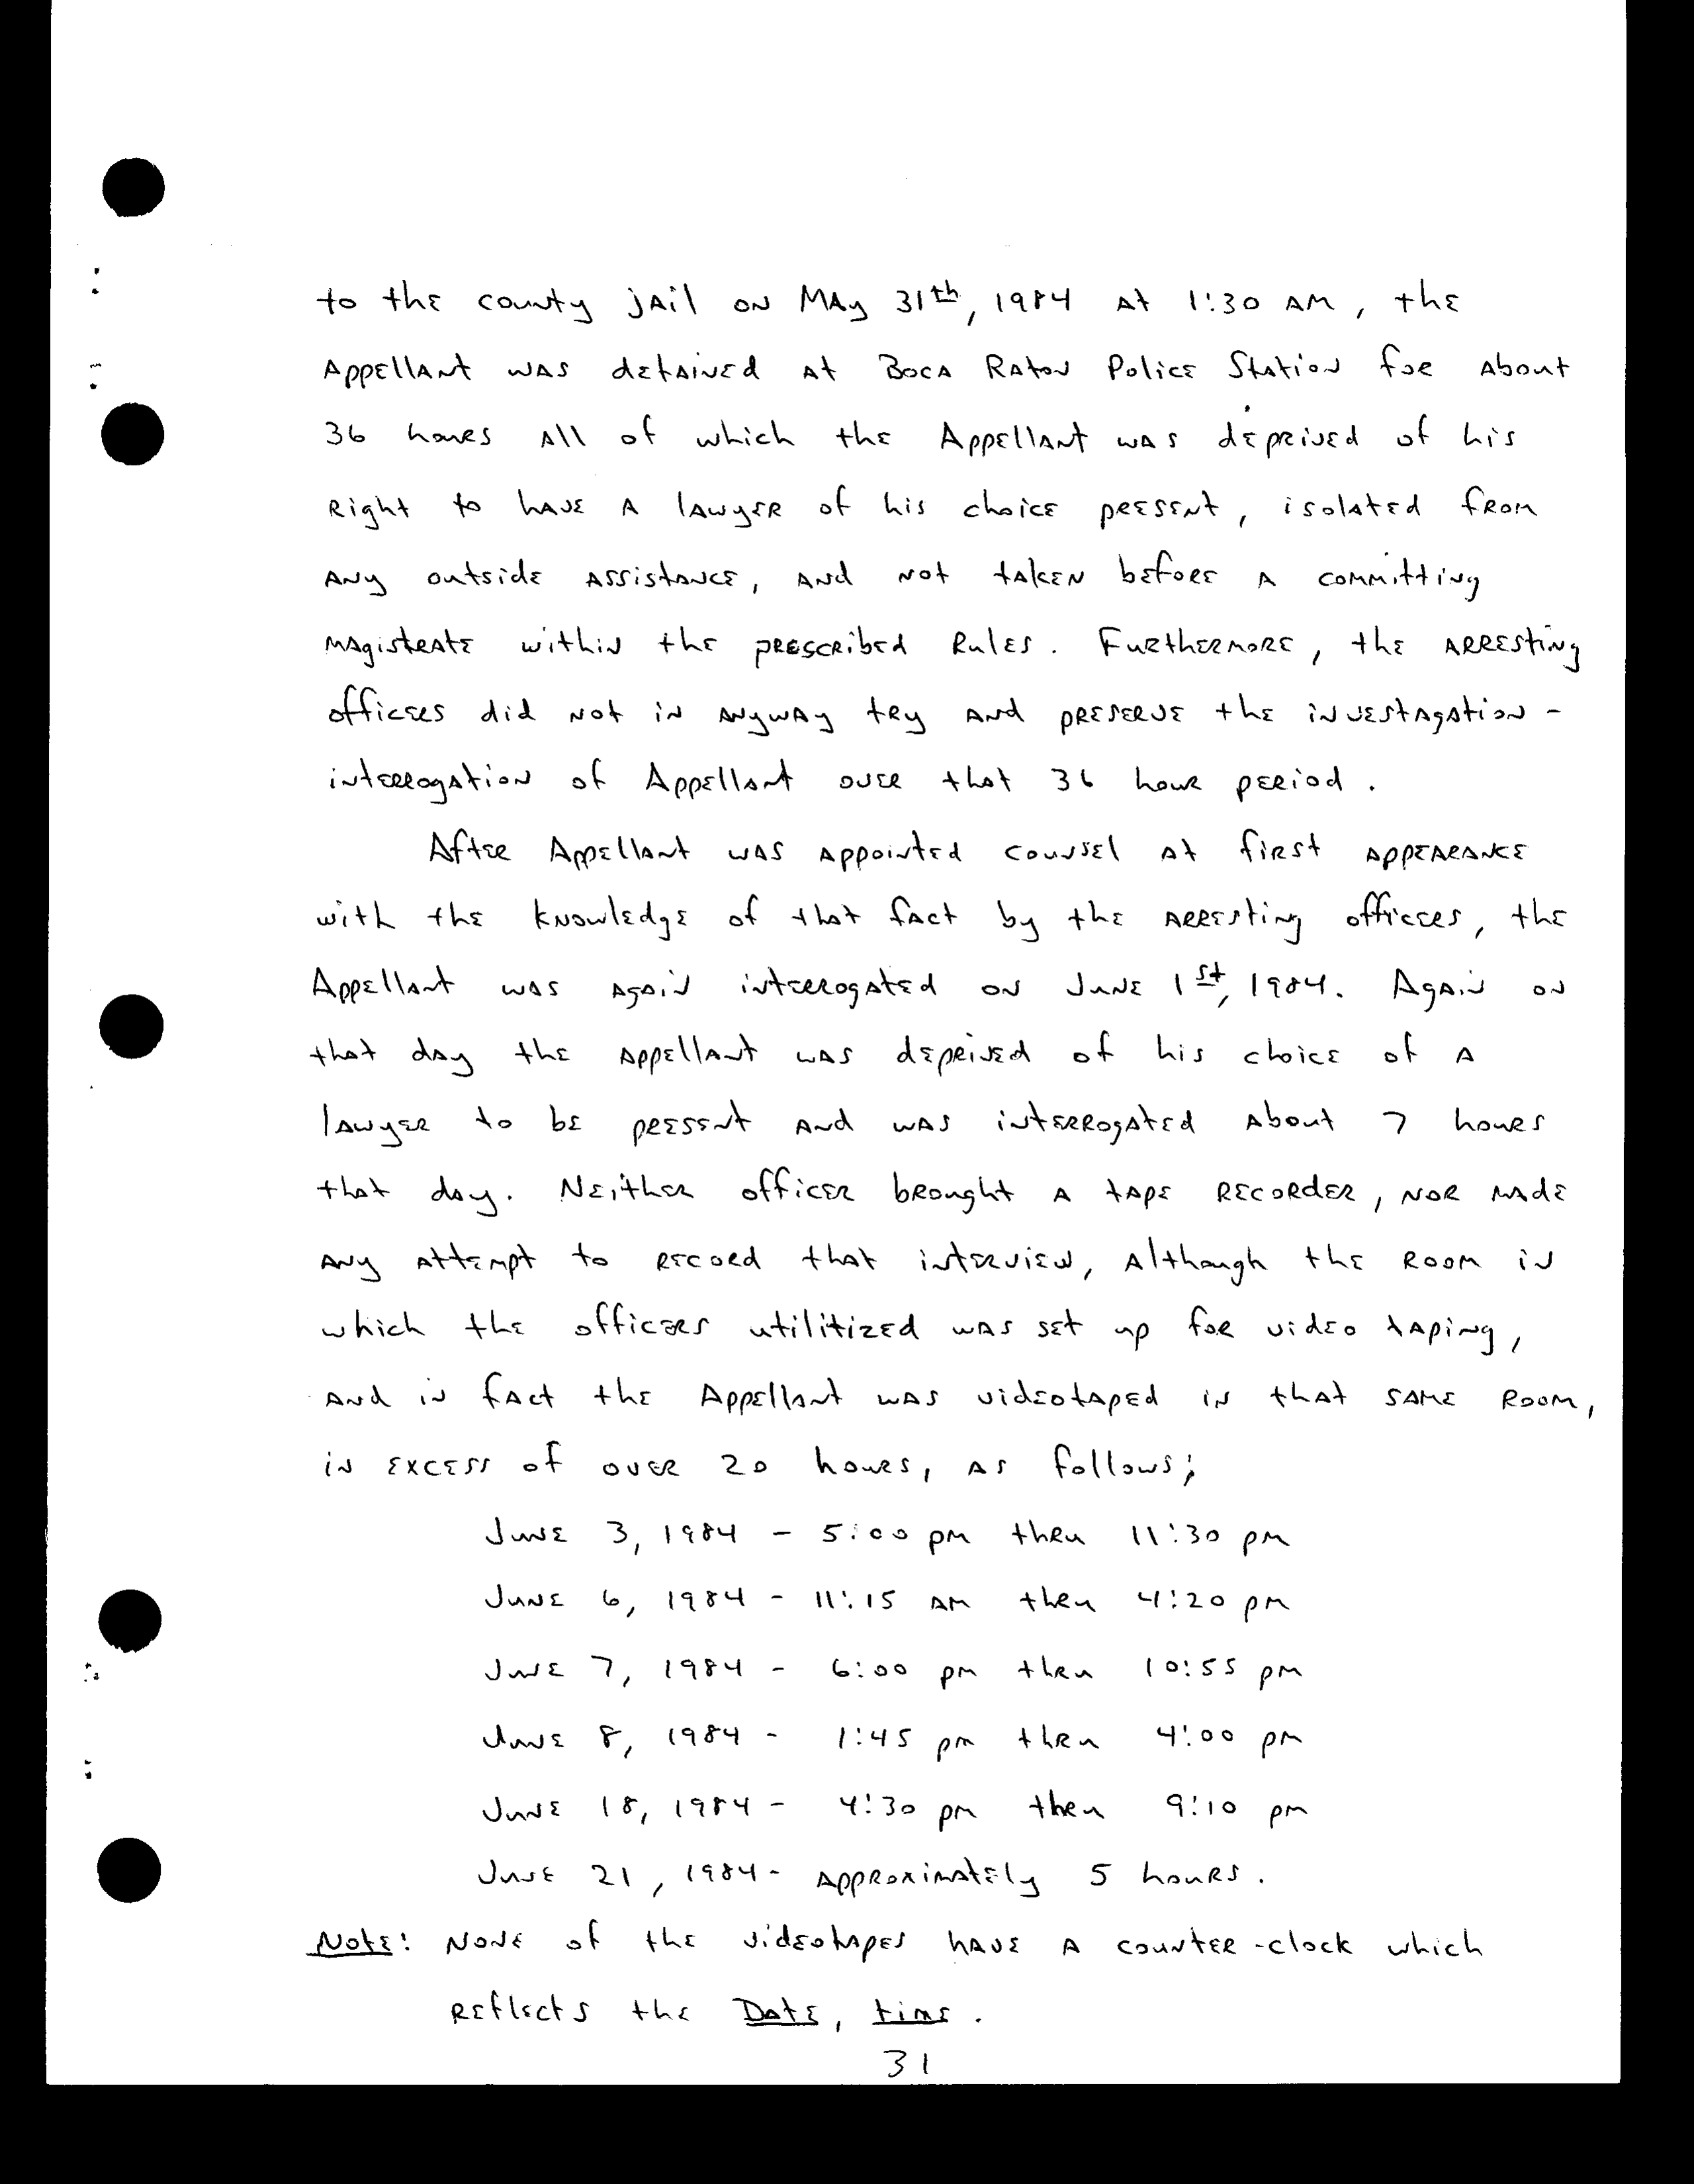 to the county jail on May 31th, 1984 at 1:30 AM, the
Appellant was detained at Boca Raton Police Station for about
36 hours all of which the Appellant was deprived of his
right to have a lawyer of his choice present, isolated from
any outside assistance, and not taken before a committing
magistrate within the prescribed Rules. Furthermore, the arresting
officers did not in anyway try and preserve the investagation-
interrogation of Appellant over that 36 hour period.
After Appellant was appointed counsel at first appearance
with the knowledge of that fact by the arresting officers, the
Appellant was again interrogated on June 1st, 1984. Again on
that day the appellant was deprived of his choice of a
lawyer to be present and was interrogated about 7 hours
that day. Neither officer brought a tape recorder, nor made
any attempt to record that interview, although the room in
which the officers utilitized was set up for video taping,
and in fact the Appellant was videotaped in that same room,
in excess of over 20 hours, as follows;
June 3, 1984 - 5:00 pm thru 11:30 pm
June 6, 1984 - 11:15 AM thru 4:20 pm
June 7, 1984 - 6:00 pm thru 10:55 pm
June 8, 1984 - 1:45 pm thru 4:00 pm
June 18, 1984 - 4:30 pm thru 9:10 pm
June 21, 1984 - approximately 5 hours.
Note: None of the videotapes have a counter-clock which
reflects the Date, time.
31